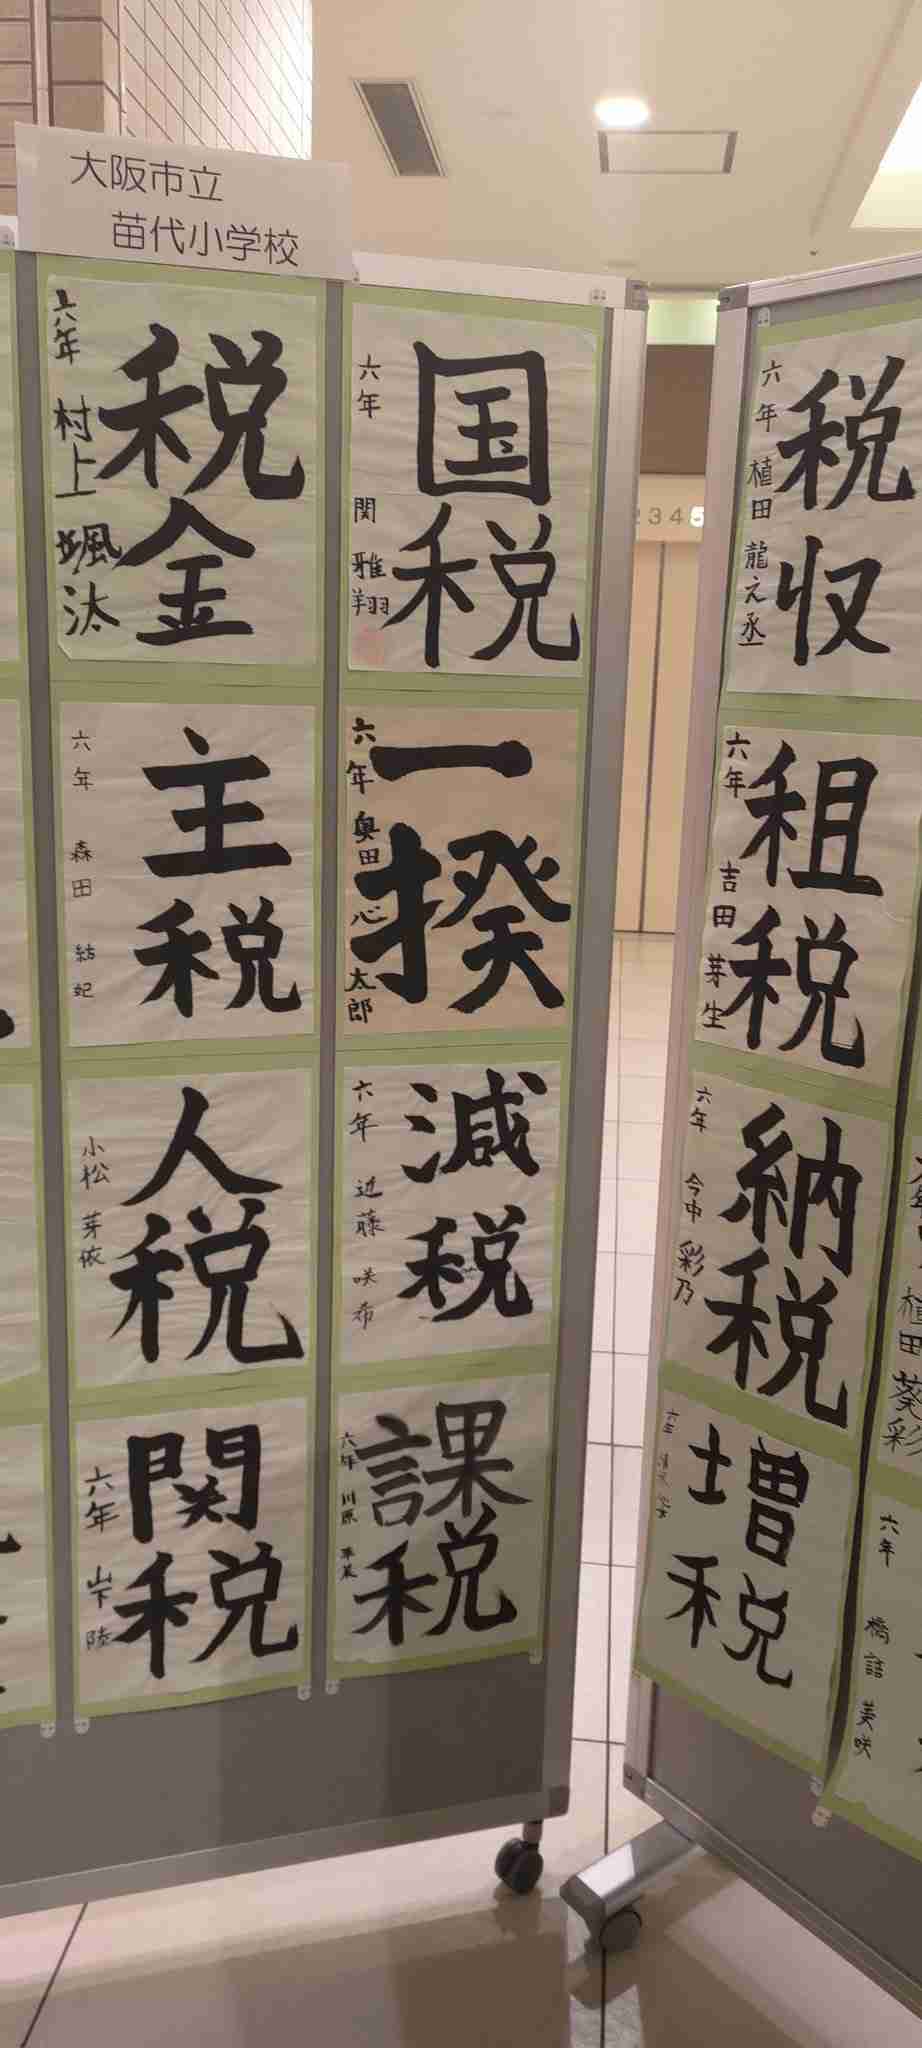 大阪市立
苗代小学校
税金
六年 村上 颯汰
国税
六年 関 雅翔
税収
六年 植田 龍之丞
主税
六年 森田 結妃
一揆
六年 奥田 心太郎
租税
六年 吉田 芽生
人税
小松 芽依
減税
六年 近藤 咲希
納税
六年 今中 彩乃
関税
六年 山下 陸
課税
六年 川原
増税
六年
植田 葵彩
六年 橋詰 美咲
2345